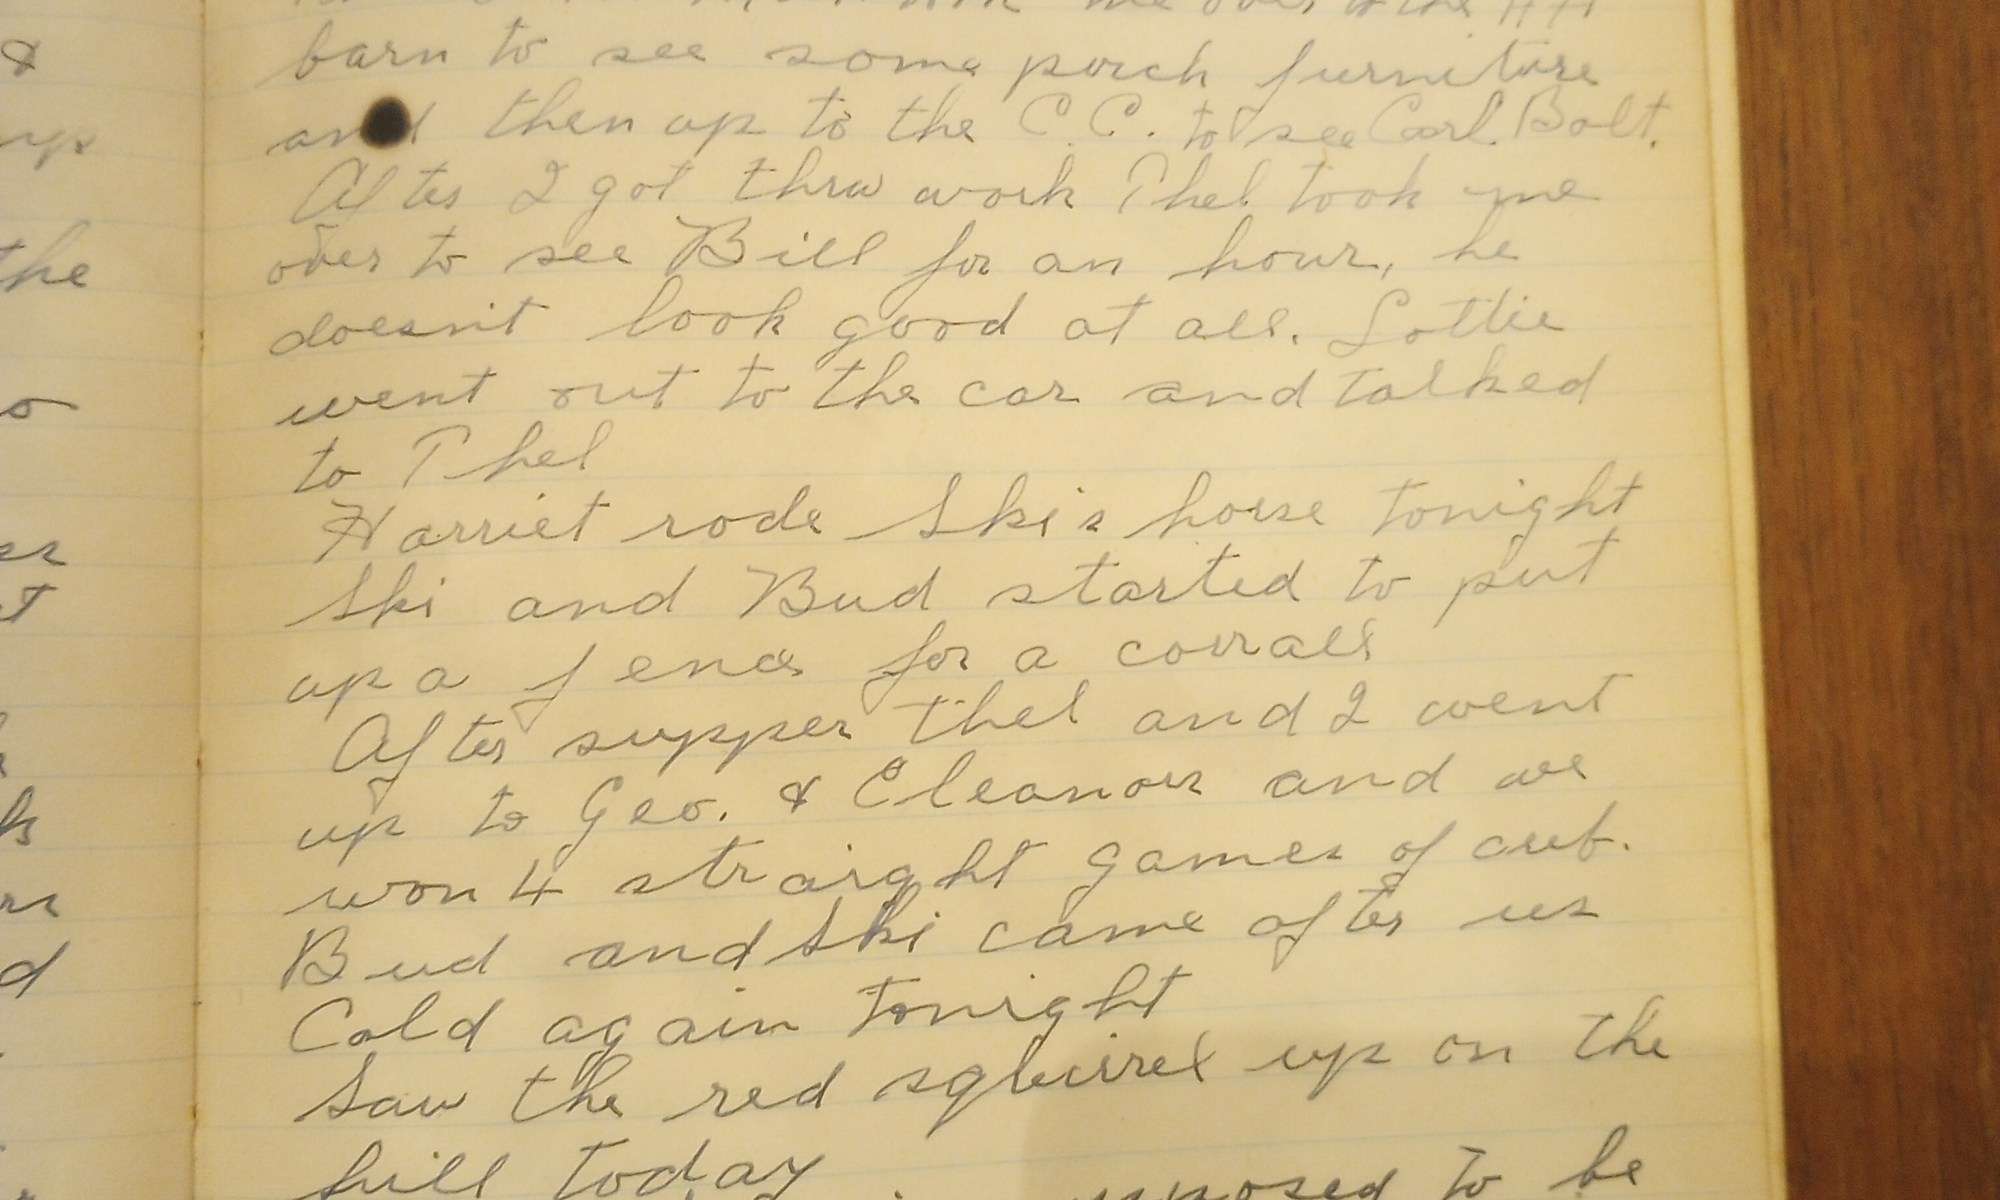 &
up
the
me over to the
barn to see some porch furniture
and then up to the C.C. to see Carl Bolt.
After I got thru work Thel took me
over to see Bill for an hour, he
doesn't look good at all. Lottie
went out to the car and talked
to Thel
Harriet rode Ski's horse tonight
Ski and Bud started to put
up a fence for a corrall
After supper Thel and I went
up to Geo. & Eleanors and we
won 4 straight games of crib.
Bud and Ski came after us
Cold again tonight
Saw the red squirrel up on the
hill today
to be